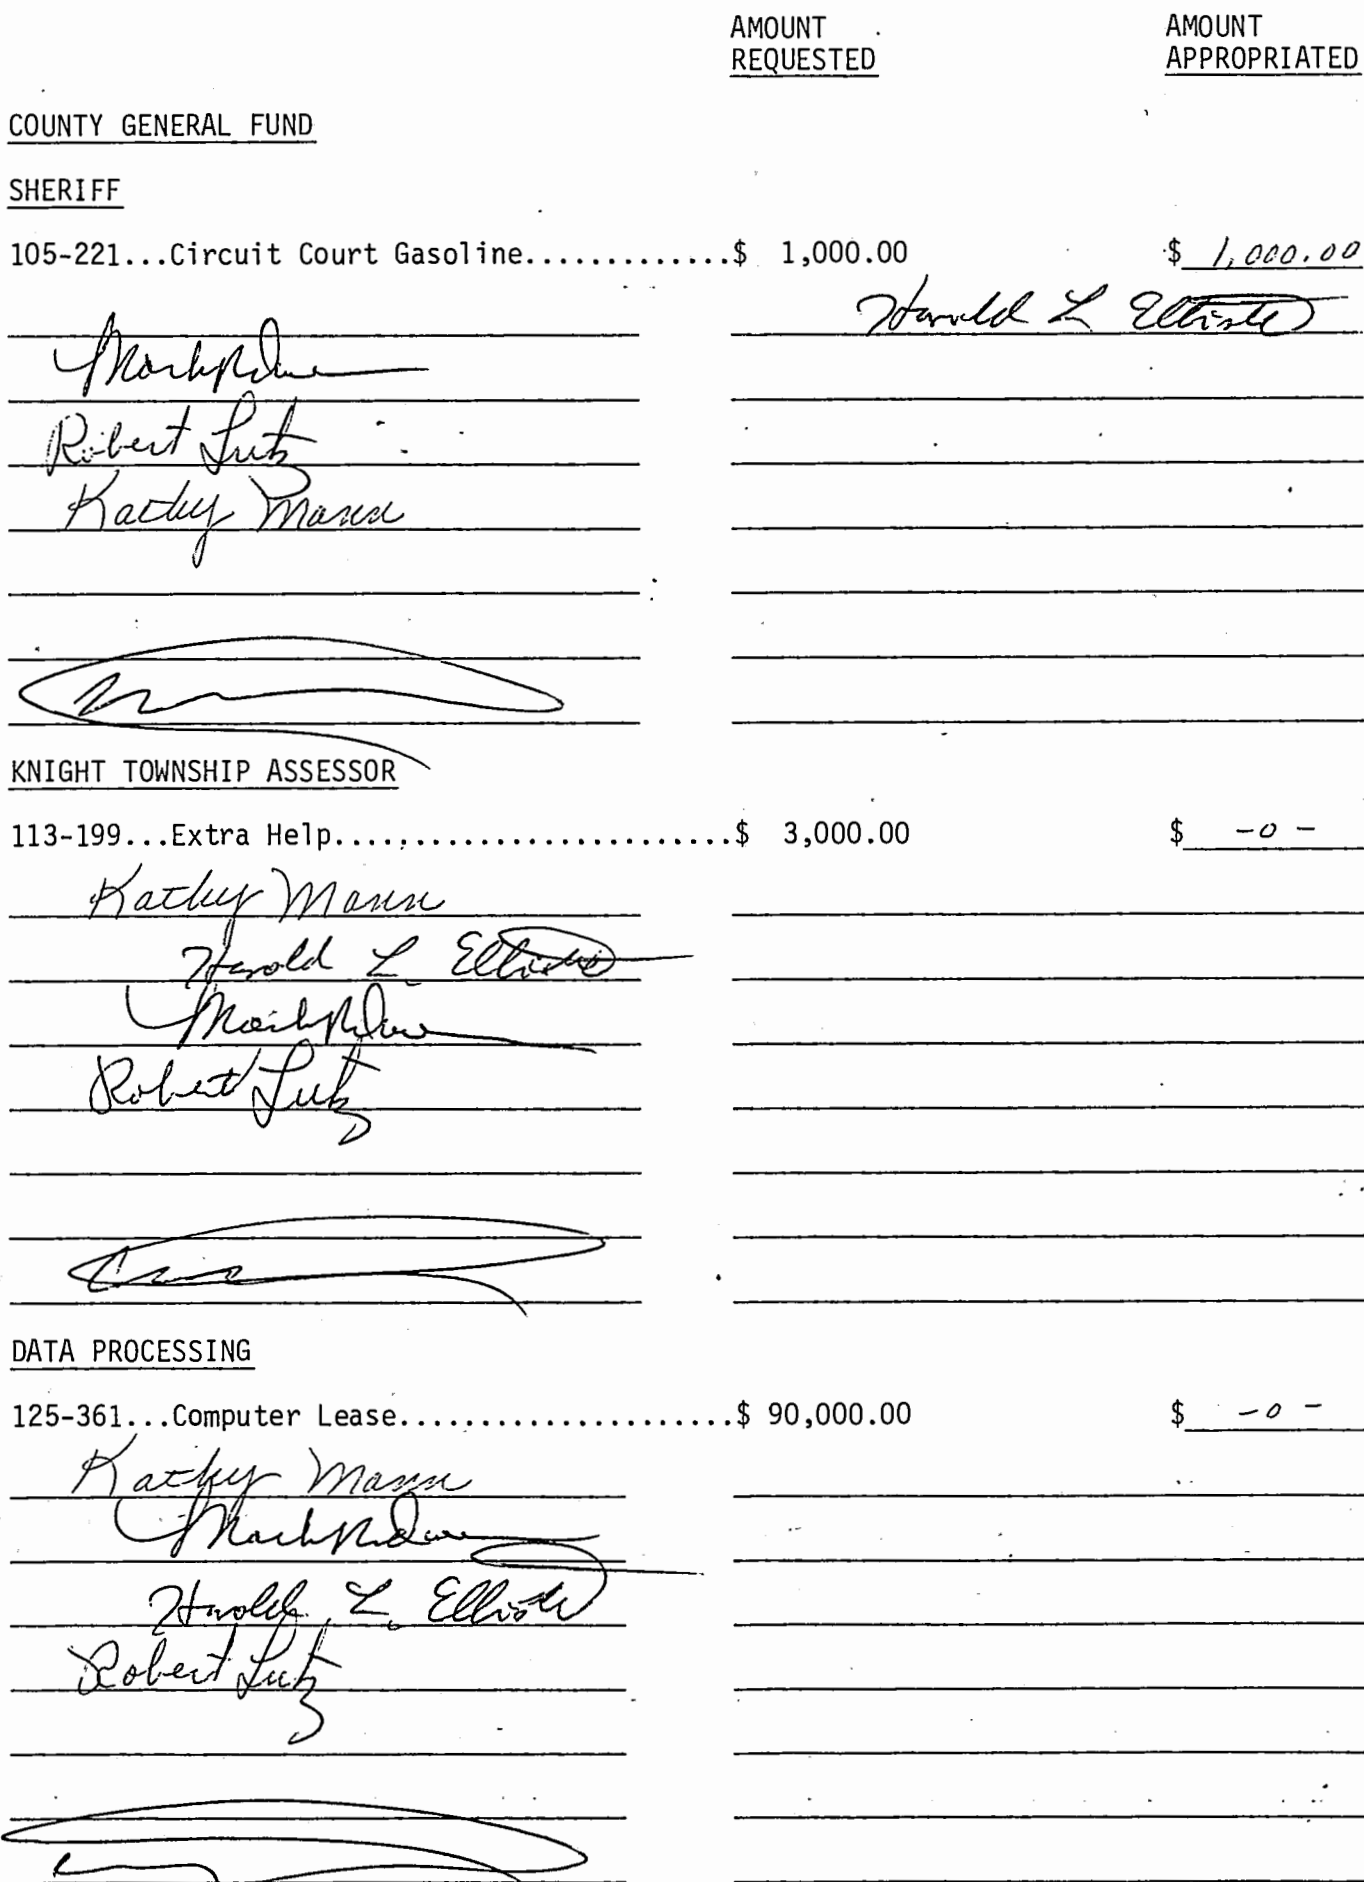 AMOUNT REQUESTED
AMOUNT APPROPRIATED
COUNTY GENERAL FUND
SHERIFF
105-221...Circuit Court Gasoline.............$ 1,000.00 $ 1,000.00
Harold L Elliott
Robert Lutz
Kathy Mann
KNIGHT TOWNSHIP ASSESSOR
113-199...Extra Help.........................$ 3,000.00 $ -0-
Kathy Mann
Harold L Elliott
Robert Lutz
DATA PROCESSING
125-361...Computer Lease.....................$ 90,000.00 $ -0-
Kathy Mann
Harold L. Elliott
Robert Lutz